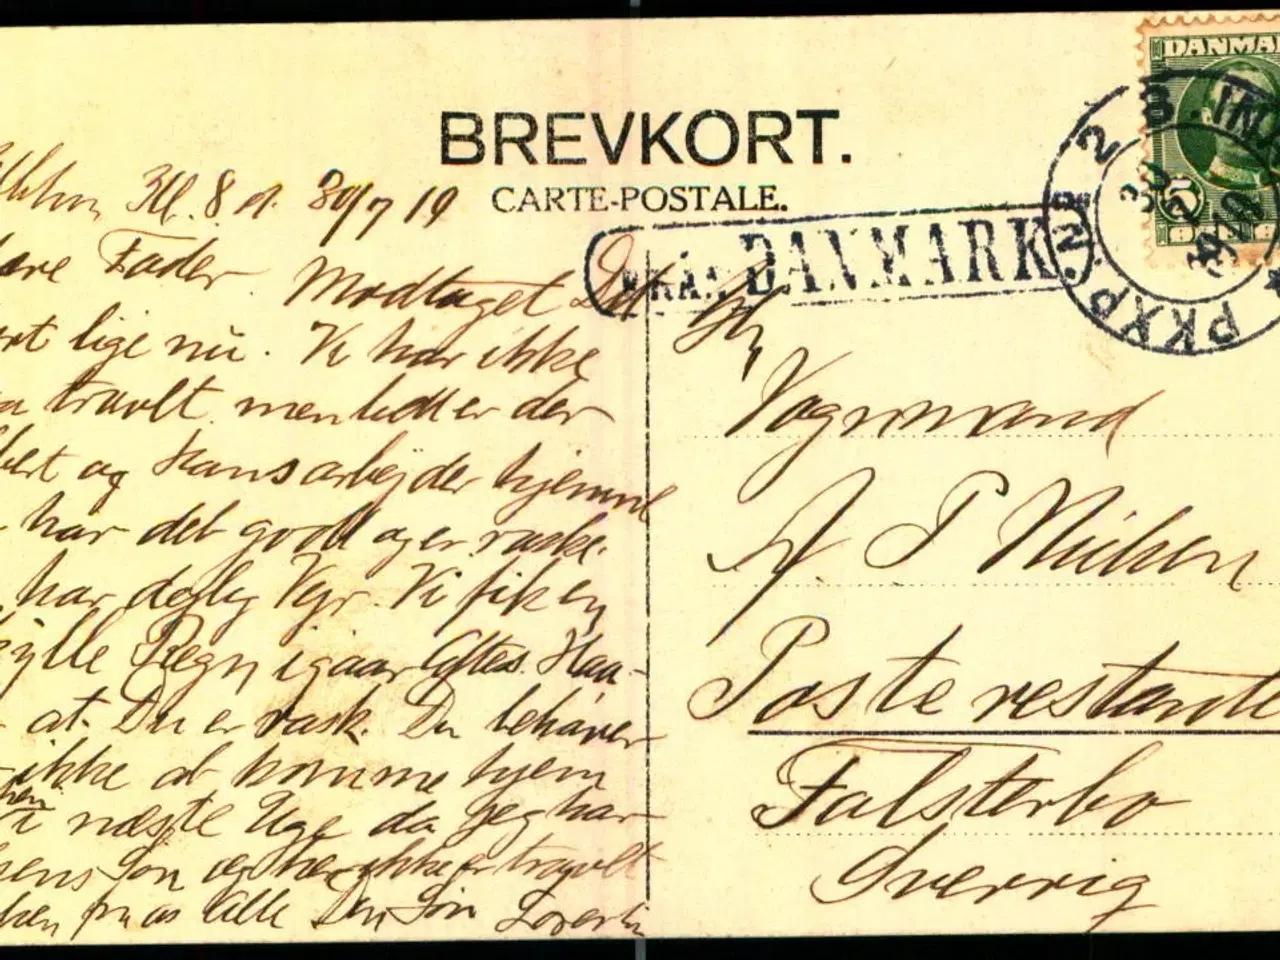 BREVKORT.
CARTE-POSTALE.
DANMARK
FRA DANMARK
PKXP. Nr. 2 B. IND
Kl. 8 30/7 10
Fader. Modtaget Dit
lige nu. Vi har ikke
travlt men lidt er der
og Hans arbejder hjemme
har det godt og er raske.
har dejlig Vejr. Vi fik en
Regn igaar Aftes. Haa-
at Du er rask. Du behøver
ikke at komme hjem
i næste Uge da jeg har
Søn og her ikke er travlt
fra os Alle Din Søn
Hr.
Vognmand
P Nielsen
Poste restante
Falsterbo
Sverrig